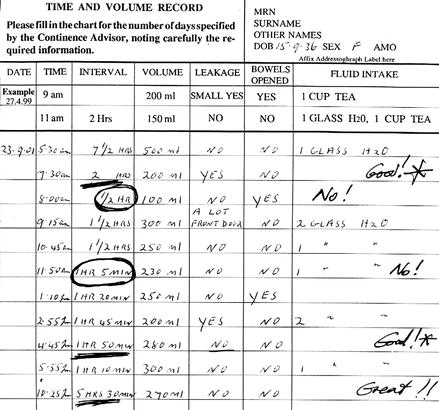 TIME AND VOLUME RECORD
Please fill in the chart for the number of days specified
by the Continence Advisor, noting carefully the re-
quired information.
MRN
SURNAME
OTHER NAMES
DOB 15.9.36 SEX F AMO
Affix Addressograph Label here
DATE TIME INTERVAL VOLUME LEAKAGE BOWELS OPENED FLUID INTAKE
Example 27.4.99 9 am 200 ml SMALL YES YES 1 CUP TEA
11 am 2 Hrs 150 ml NO NO 1 GLASS H20, 1 CUP TEA
23.9.01 5.30am 7 1/2 HRS 500 ml NO NO 1 GLASS H20
7.30am 2 HRS 200 ml YES NO Good! *
8.00am 1/2 HR 100 ml NO YES No!
9.15am 1 1/2 HRS 300 ml A LOT FRONT DOOR NO 2 GLASS H20
10.45am 1 1/2 HRS 250 ml NO NO 1 " "
11.50am 1 HR 5 MIN 230 ml NO NO 1 " " No!
1.10p 1 HR 20 MIN 250 ml NO YES
2.55p 1 HR 45 MIN 200 ml YES NO 2 "
4.45p 1 HR 50 MIN 280 ml NO NO Good! *
5.55p 1 HR 10 MIN 300 ml NO NO 1 " "
10.25p 5 HRS 30 MIN 270 ml NO NO Great !!